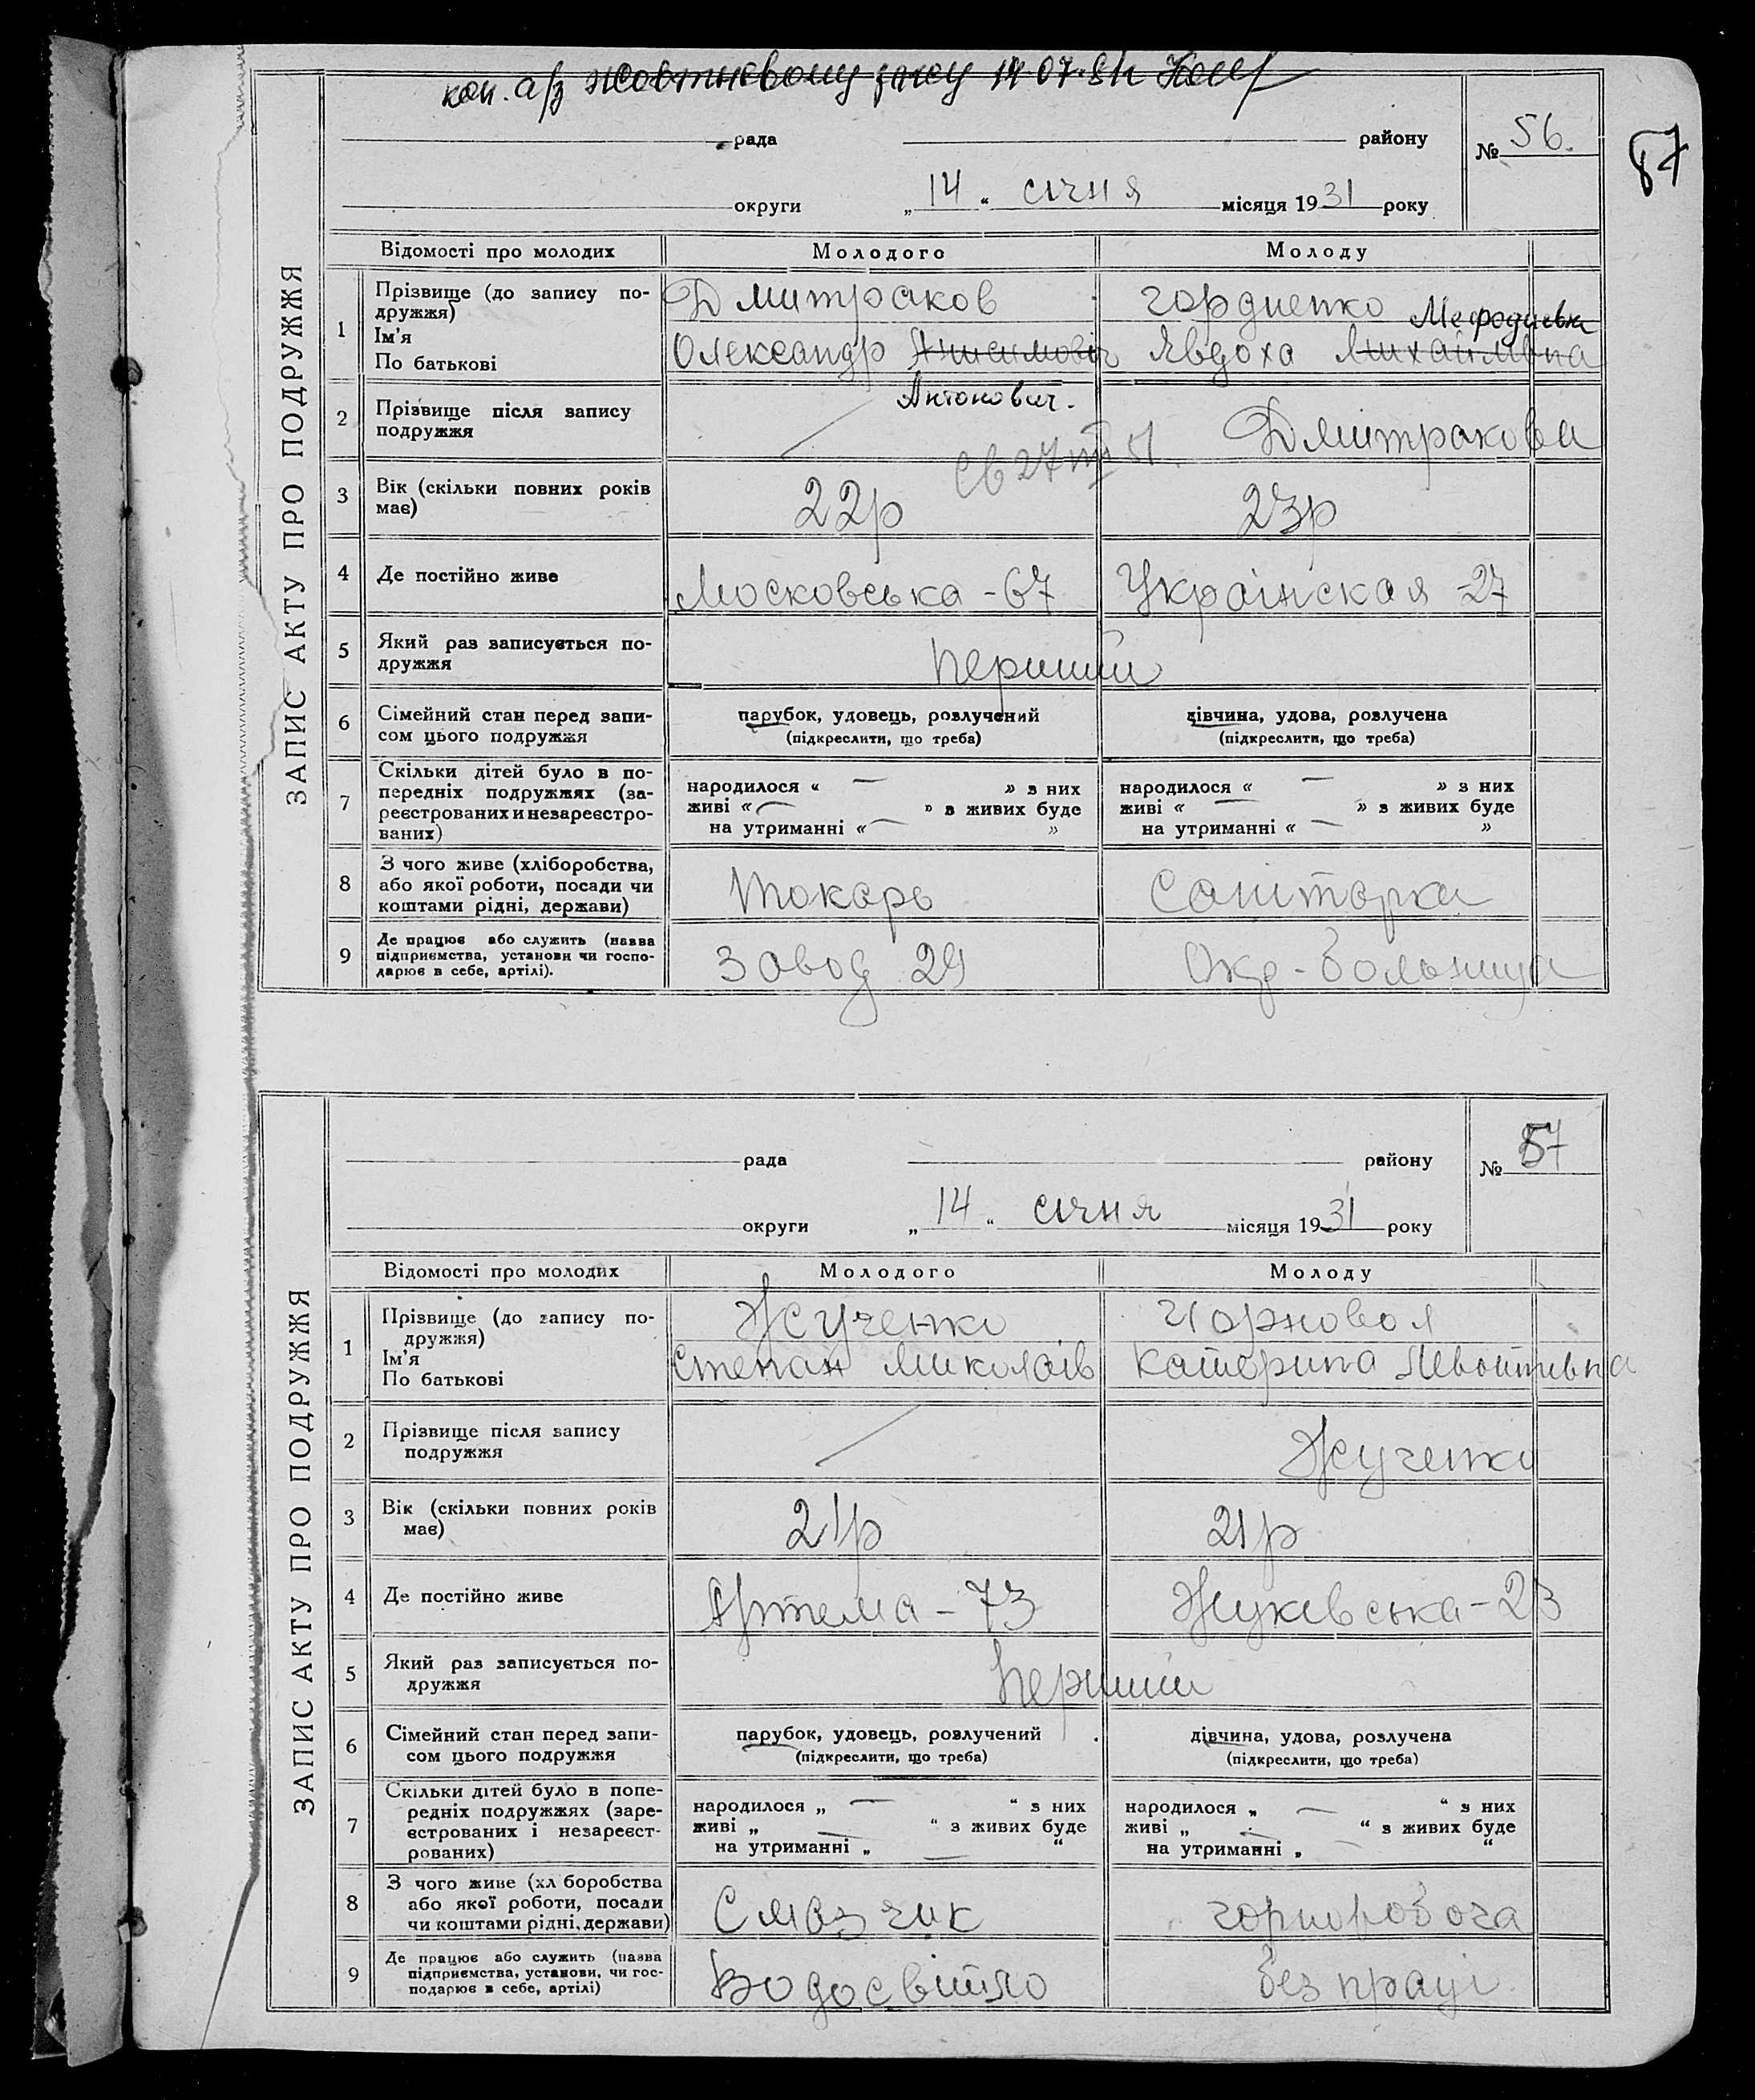 коп. а/з жовтневому загсу 14.07.81
рада района № 56.
87
округи „14“ січня місяця 1931 року
ЗАПИС АКТУ ПРО ПОДРУЖЖЯ
Відомості про молодих Молодого Молоду
1 Прізвище (до запису по-
дружжя)
Ім’я
По батькові
Дмитраков Гордиенко
Мефодиевна
Олександр Анисимович Явдоха Михайлівна
Антонович.
2 Прізвище після запису
подружжя
— Дмитракова
Св 27 VIII 51.
3 Вік (скільки повних років
має)
22р 23р
4 Де постійно живе Московська - 67 Українская - 27
5 Який раз записується по-
дружжя
перший
6 Сімейний стан перед запи-
сом цього подружжя
парубок, удовець, розлучений дівчина, удова, розлучена
(підкреслити, що треба) (підкреслити, що треба)
7 Скільки дітей було в по-
передніх подружжях (за-
реєстрованих и незареєстро-
ваних)
народилося « — » з них народилося « — » з них
живі « — » з живих буде живі « — » з живих буде
на утриманні « — » на утриманні « — »
8 З чого живе (хліборобства,
або якої роботи, посади чи
коштами рідні, держави)
Токарь Санітарка
9 Де працює або служить (назва
підприємства, установи чи госпо-
дарює в себе, артілі).
Завод 29 Окр - больница
рада району № 57
округи „14“ січня місяця 1931 року
ЗАПИС АКТУ ПРО ПОДРУЖЖЯ
Відомості про молодих Молодого Молоду
1 Прізвище (до запису по-
дружжя)
Ім’я
По батькові
Жученко Чорновол
Степан Миколаів Катерина Левонтивна
2 Прізвище після запису
подружжя
— Жученко
3 Вік (скільки повних років
має)
21р 21р
4 Де постійно живе Артема - 73 Жуківська - 23
5 Який раз записується по-
дружжя
перший
6 Сімейний стан перед запи-
сом цього подружжя
парубок, удовець, розлучений дівчина, удова, розлучена
(підкреслити, що треба) (підкреслити, що треба)
7 Скільки дітей було в попе-
редніх подружжях (заре-
єстрованих і незареєст-
рованих)
народилося „ — “ з них народилося „ — “ з них
живі „ — “ з живих буде живі „ — “ з живих буде
на утриманні „ — “ на утриманні „ — “
8 З чого живе (хл боробства
або якої роботи, посади
чи коштами рідні, держави)
Смазчик чорноробоча
9 Де працює або служить (назва
підприємства, установи, чи гос-
подарює в себе, артілі)
Водосвітло без праці